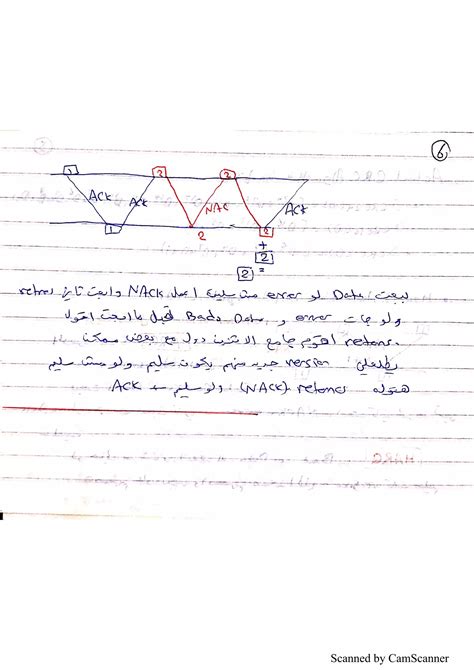 6
1 2 2
ACK ACK NAC ACK
1 2 2
+
2
=
2
ببعت Data لو error مش سليمة اعمل NACK وابعت تاني
ولو جات error و Data قبل ما ابعت اقوله
اقوم جامع الاتنين دول مع بعض ممكن
يطلعلي version جديد منهم يكون سليم ولو مش سليم
هقوله (NACK) ولو سليم ACK
Scanned by CamScanner